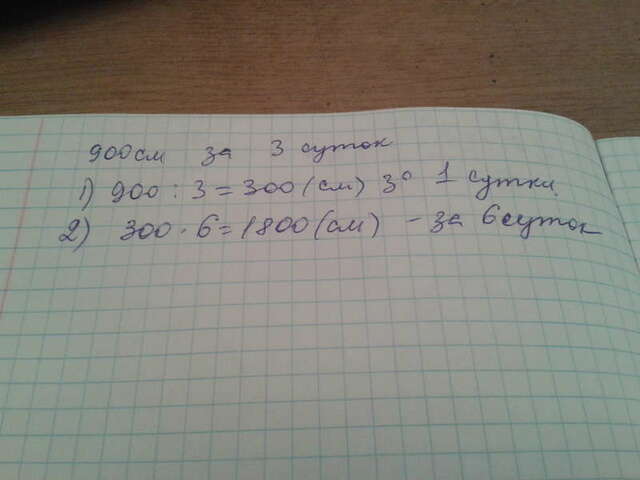 900см за 3 суток
1) 900 : 3 = 300 (см) за 1 сутки.
2) 300 · 6 = 1800 (см) - за 6 суток